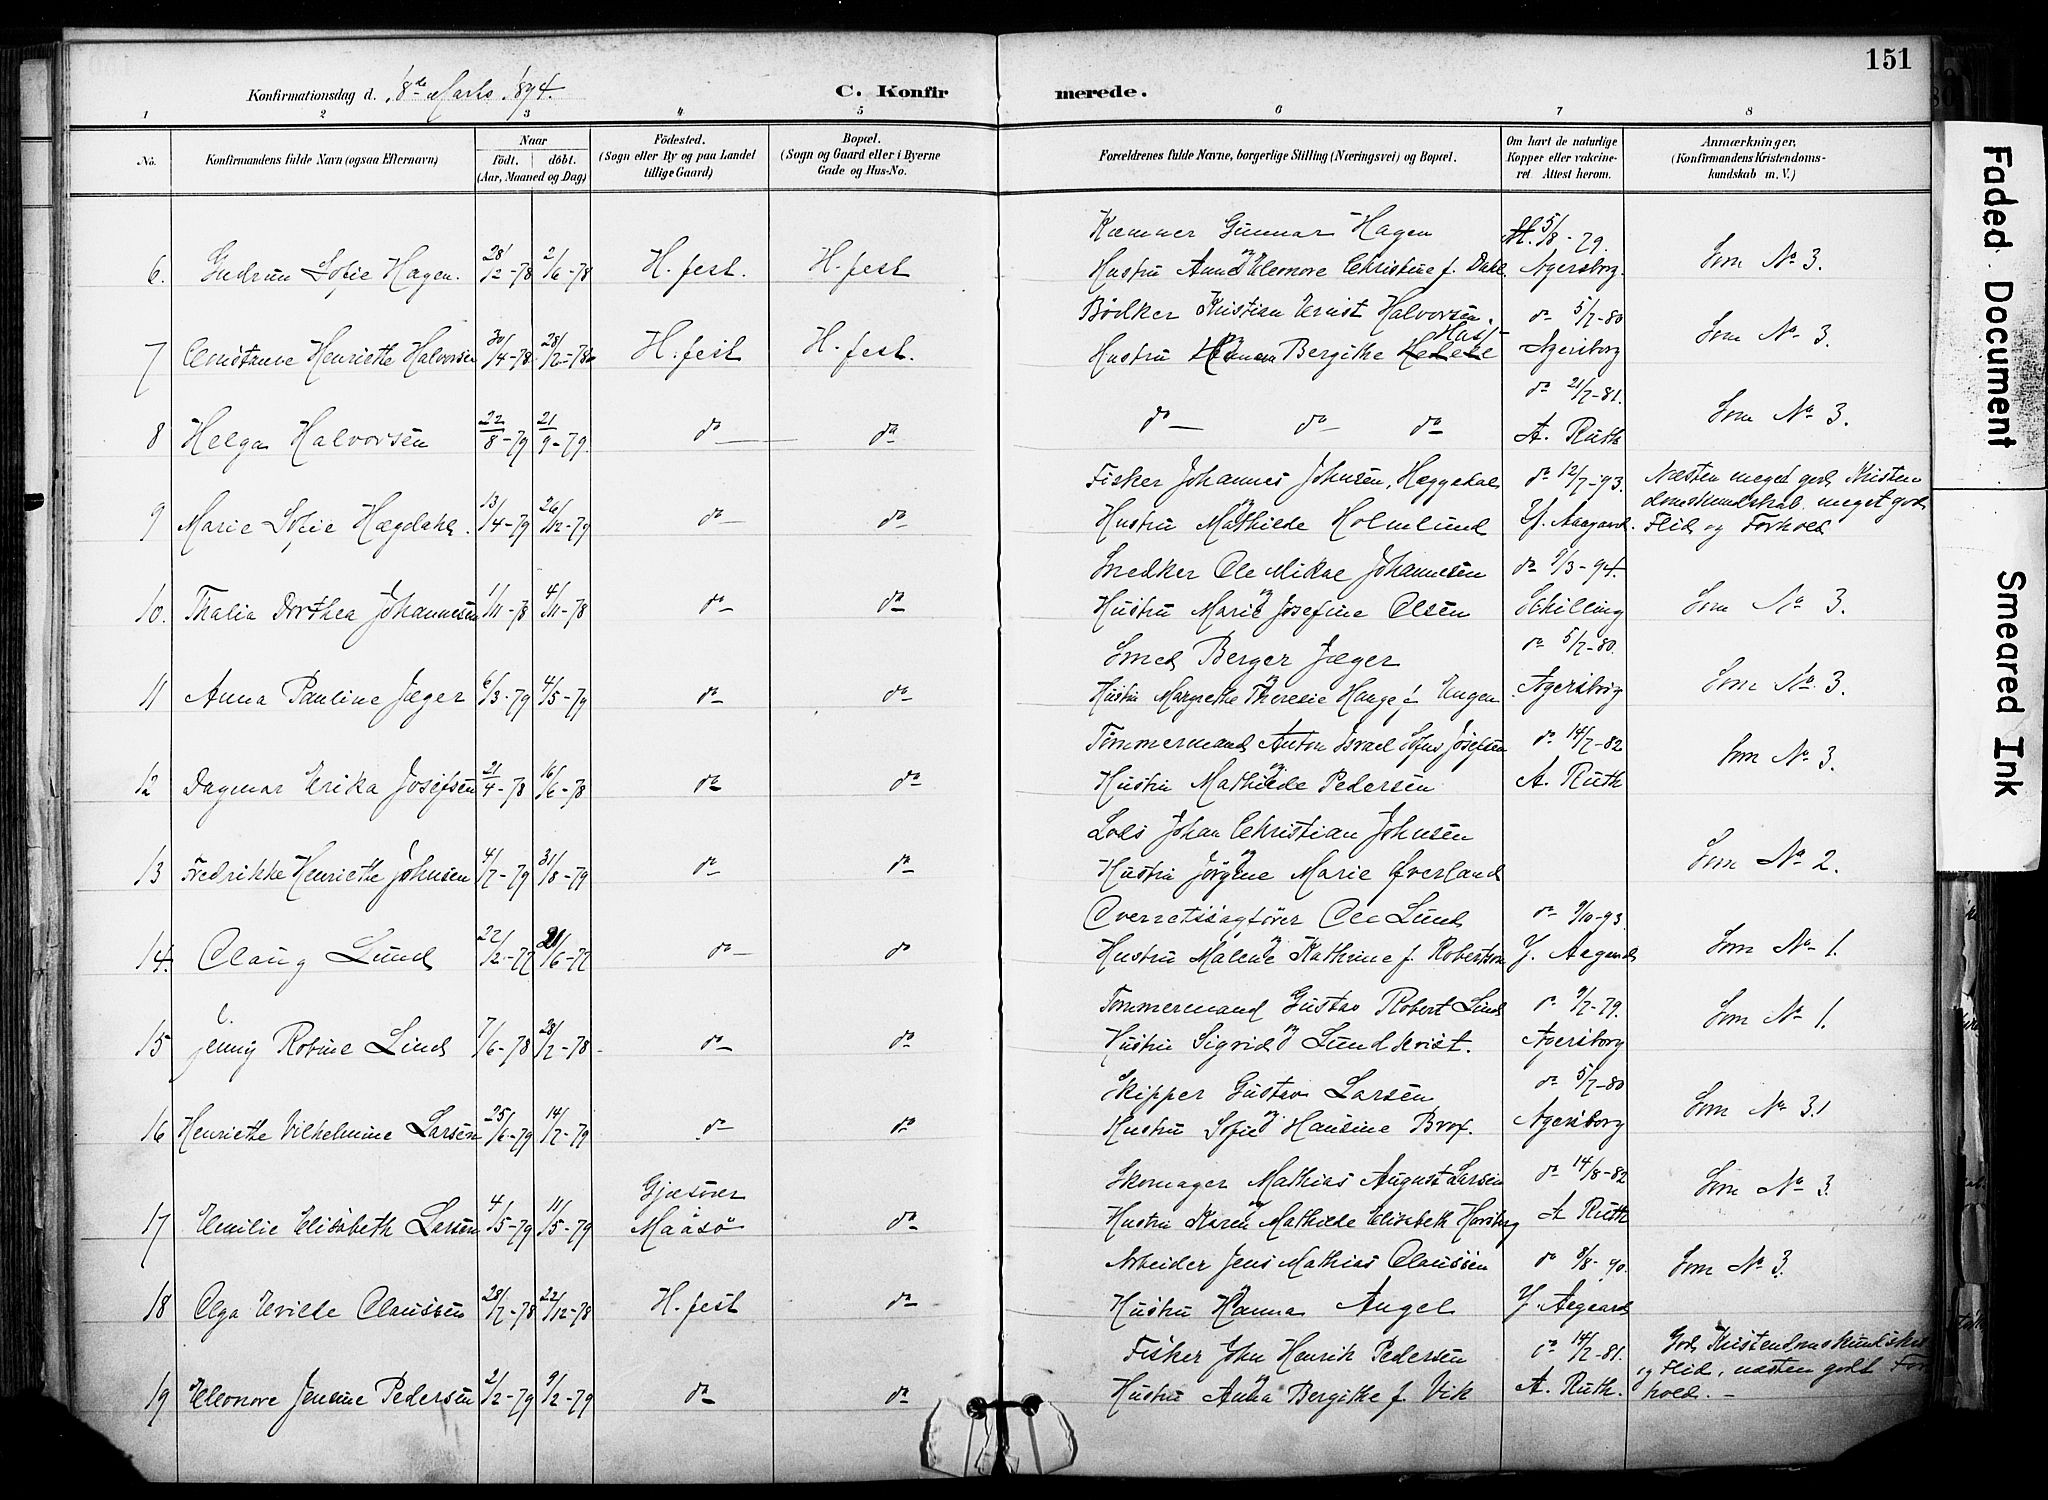 151
Konfirmationsdag d. 18de Marts 1894.
C. Konfirmerede.
1 2 3 4 5 6 7 8
No.
Konfirmandens fulde Navn (ogsaa Efternavn)
Naar
födt. döbt.
(Aar, Maaned og Dag)
Födested.
(Sogn eller By og paa Landet
tillige Gaard)
Bopæl.
(Sogn og Gaard eller i Byerne
Gade og Hus-No.
Forældrenes fulde Navne, borgerlige Stilling (Næringsvei) og Bopæl.
Om havt de naturlige
Kopper eller vakcine-
ret Attest herom.
Anmærkninger,
(Konfirmandens Kristendoms-
kundskab m. V.)
Kæmner Gunnar Hagen 5/8-79.
6. Gudrun Sofie Hagen. 28/2-78 2/6-78 H.fest. H.fest Hustru Anna Eleonore Christine f. Dahl. Agersborg. Som No 3.
Bödker Kristian Ernst Halvorsen. do 5/7-80
7 Constance Henriette Halvorsen 30/4-78 28/2-78 H.fest H.fest. Hustru Hanna Bergithe Agersborg Som No 3.
do 21/7-81.
8 Helga Halvorsen 22/8-79 21/9-79. do do do do do A. Ruth Som No 3.
Fisker Johannes Johnsen, Heggedal do 12/7-93. Næsten meget god Kristen
9 Marie Sofie Hægdahl. 13/4-79 26/12-79 do do Hustru Mathilde Holmlund Y. Aagaard. domskundskab, meget god
Flid og Forhold
Snedker Ole Mikal Johannesen do 9/3-94.
10. Thalia Dorthea Johannesen 1/11-78 4/11-78 do do Hustru Marie Josefine Olsen Schilling Som No 3.
Smed Berger Jæger do 5/7-80.
11 Anna Pauline Jæger 6/3-79 4/5-79 do do Hustru Margrethe Theresie Hauge f. Engen Agersborg Som No 3.
Tömmermand Anton Israel Sofus Josefsen do 14/7-82
12 Dagmar Erika Josefsen 21/4-78 16/6-78 do do Hustru Mathilde Pedersen A. Ruth Som No 3.
Lods Johan Christian Johnsen
13 Fredrikke Henriette Johnsen 4/7-79 31/8-79 do do Hustru Jörgine Marie Øverland Som No 2.
Overretssagförer Ole Lund do 9/10-93
14. Olaug Lund 22/2-77 21/6-77 do do Hustru Malene Kathrine f. Robertson Y. Aagaard Som No 1.
Tömmermand Gustav Robert Lind do 9/7-79.
15 Jenny Robine Lind 7/6-78 28/7-78 do do Hustru Sigrid Lundkvist. Agersborg Som No 1.
Skipper Gustav Larsen do 5/7-80
16 Henriette Vilhelmine Larsen 25/6-79 14/7-79 do do Hustru Sofie Hansine Brox. Agersborg Som No 3.
Gjæsvær Skomager Mathias August Larsen do 14/8-82
17 Emilie Elisabeth Larsen 4/5-79 11/5-79 Maasö do Hustru Karen Mathilde Elisabeth A Ruth Som No 3
Arbeider Jens Mathias Claussen do 8/8-90.
18 Olga Evilde Claussen 28/7-78 22/12-78 H.fest do Hustru Hanna Angel Y. Aagaard Som No 3.
Fisker John Henrik Pedersen do 14/7-81. God Kristendomskundskab
19 Eleonore Jensine Pedersen 2/2-79 9/2-79 do do Hustru Anna Bergithe f. Vik A. Ruth. og Flid, næsten godt For
hold.
Faded Document
Smeared Ink